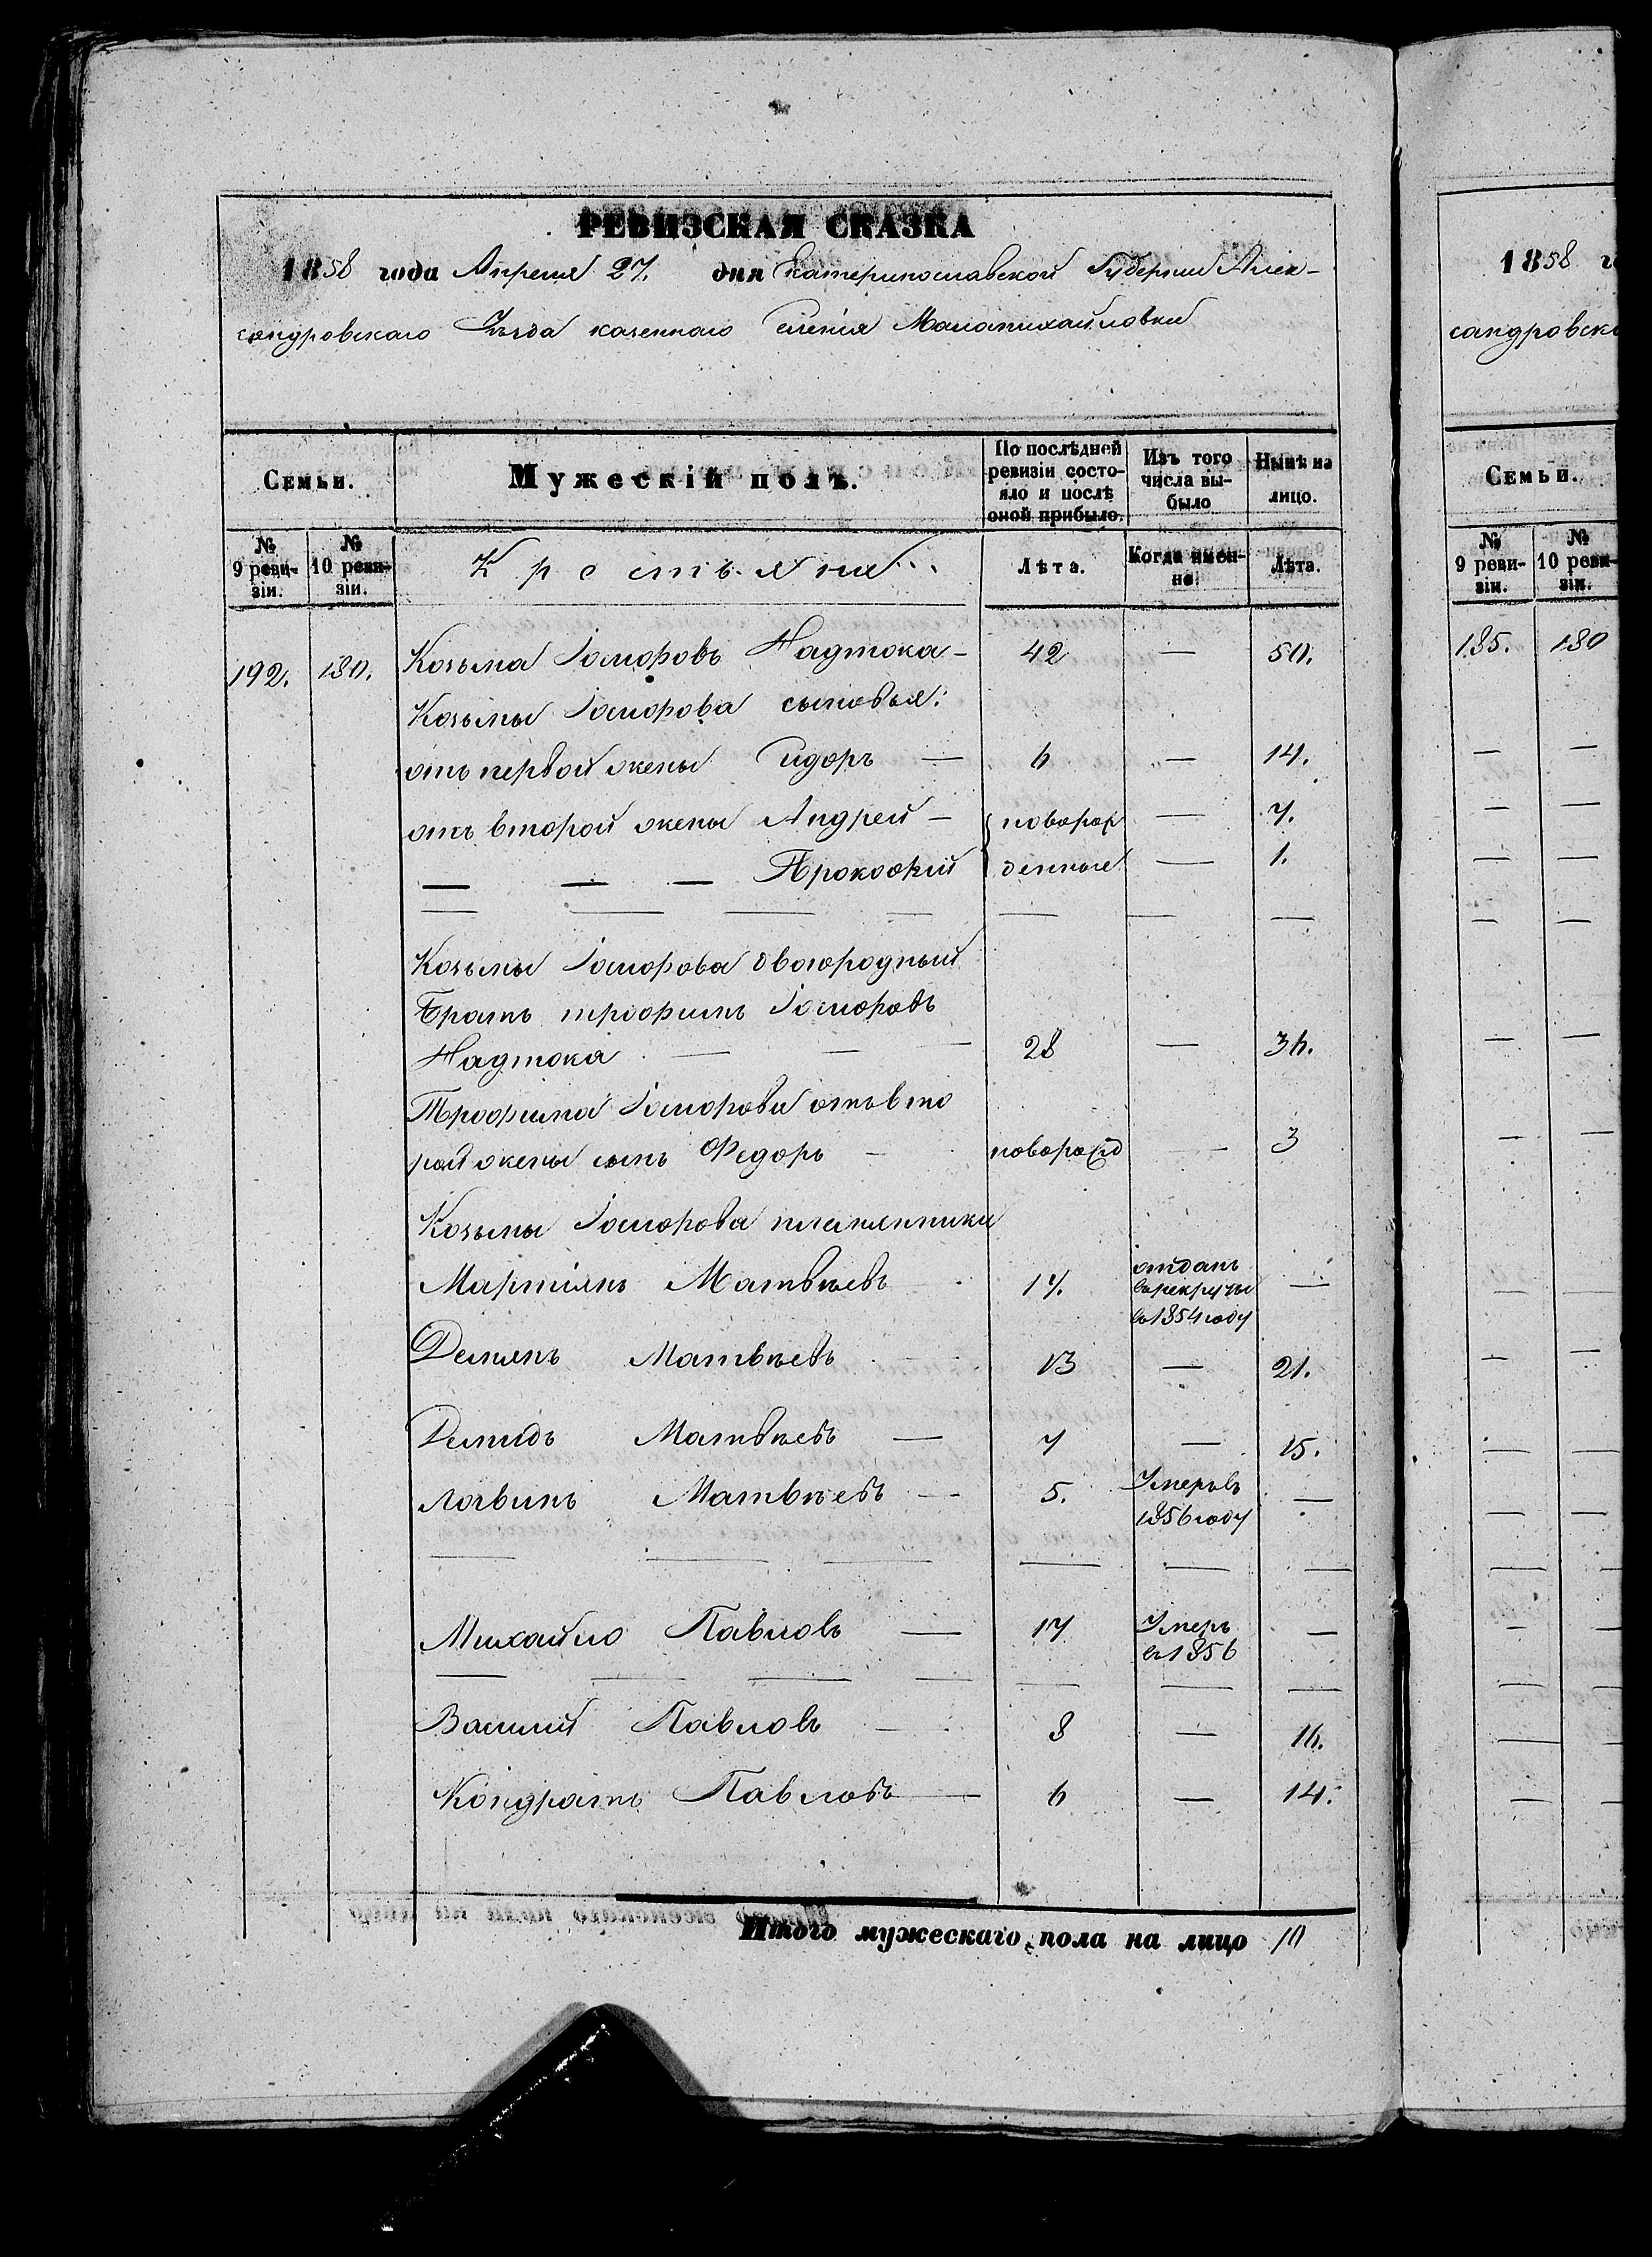 РЕВИЗСКАЯ СКАЗКА
1858 года Апреля 27. дня Екатеринославской Губернии Алек-
сандровскаго Уѣзда казеннаго селенія Маломихайловки
Семьи. Мужескій полъ. По послѣдней ревизіи состояло и послѣ оной прибыло. Изъ того числа выбыло Нынѣ на лицо.
№ 9 ревизіи. № 10 ревизіи. Крестьяне Лѣта. Когда именно. Лѣта.
192. 180. Козьма Надтока - 42 — 50.
Козьмы сыновья:
отъ первой жены Сидоръ — 6 — 14.
отъ второй жены Андрей — новорож — 7.
— — — Прокофій денные — 1.
Козьмы двоюродный
Братъ трофимъ
Надтока — — — 28 — 36.
Трофима отъ вто
рой жены сынъ Федоръ — новорожд — 3
Козьмы племянники
Мартіянъ Матвѣевъ 17. отданъ
в рекруты —
в 1854 году
Демянъ Матвѣевъ 13 — 21.
Демидъ Матвѣевъ — 7 — 15.
Логвинъ Матвѣевъ — 5. Умеръ въ —
1856 году
Михайло Павловъ — 17 Умеръ —
в 1856
Василий Павловъ — 8 — 16.
Кондратъ Павловъ — 6 — 14.
Итого мужескаго пола на лицо 10
1858 г
сандровска
Семьи.
№ 9 ревизіи. № 10 ревизіи.
185. 180